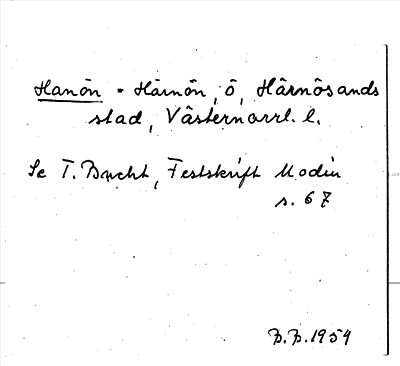 Hanön = Härnön, ö, Härnösands
stad, Västernorrl. l.
Se T. Bucht, Festskrift Modin
s. 67
B.B. 1954